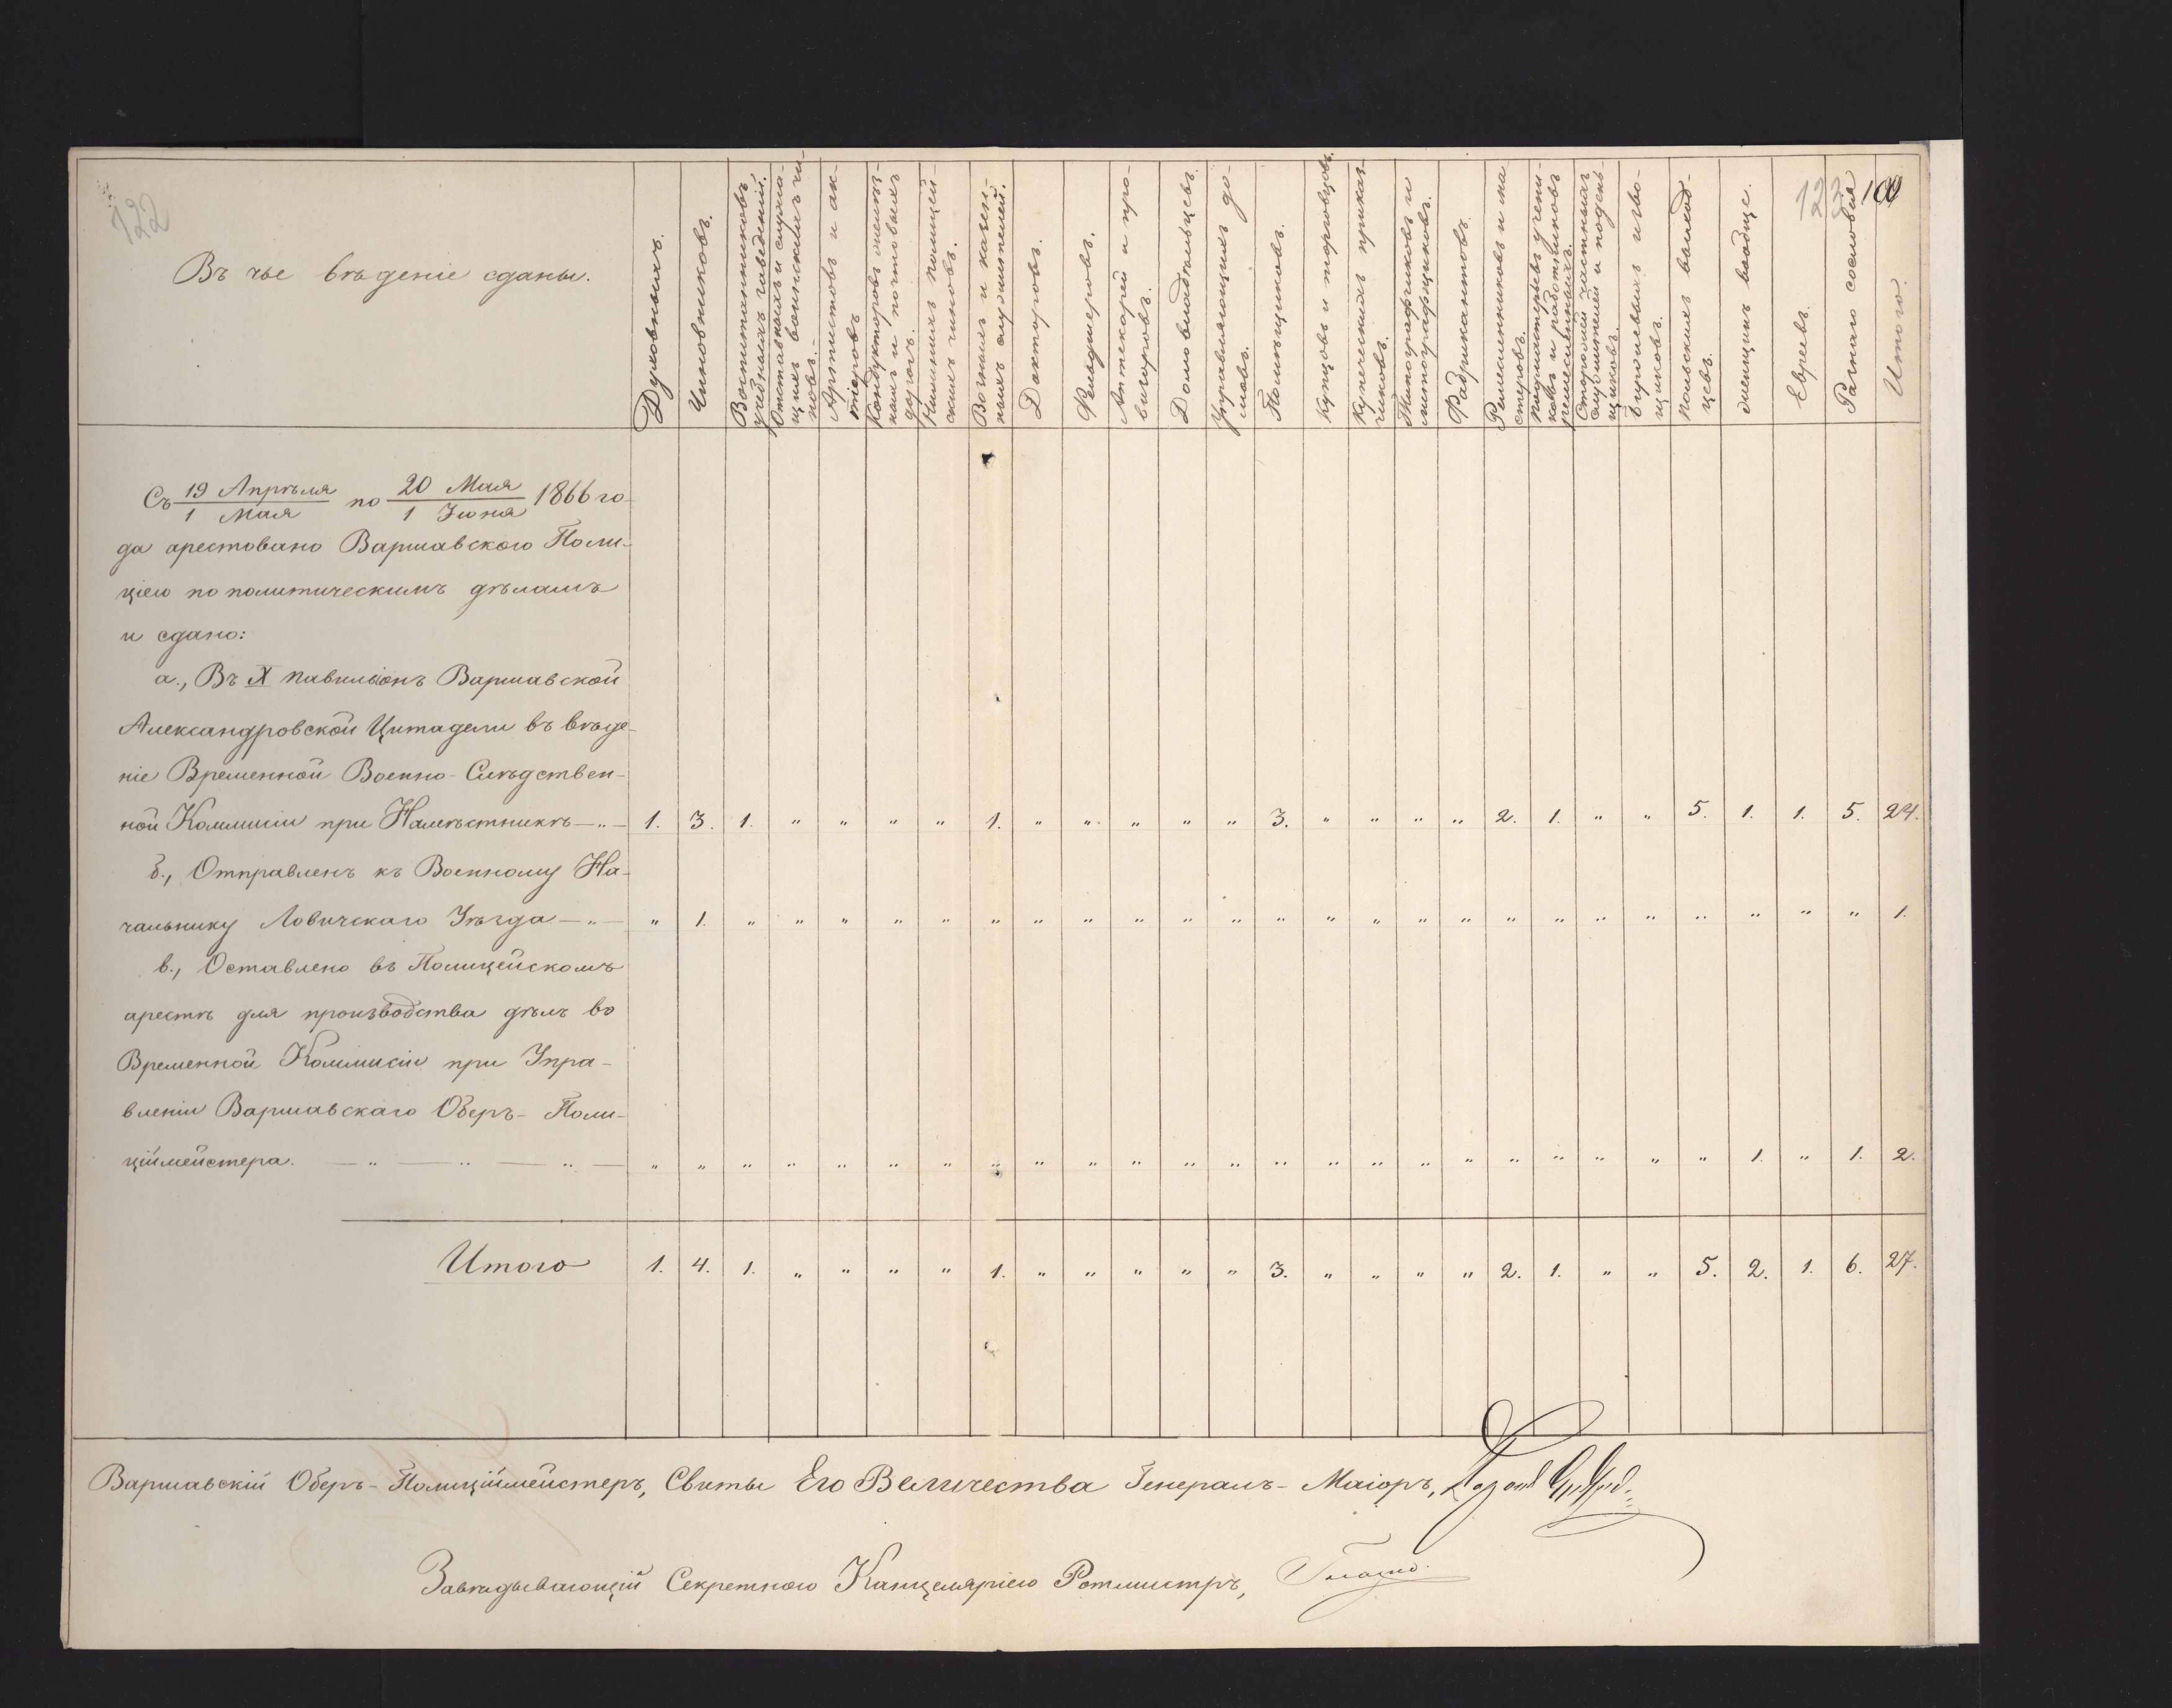 122
123
100
Въ чье вѣденіе сданы.
Духовныхъ.
Чиновниковъ.
Воспитанниковъ
учебныхъ заведеній.
Отставныхъ и служа-
щихъ воинскихъ чи-
новъ.-
Артистовъ и ак-
теровъ
Кондукторовъ желѣз-
ныхъ и почтовыхъ
дорогъ.
Нижнихъ полицей-
скихъ чиновъ.
Возныхъ и казен-
ныхъ служителей.
Докторовъ.
Фельдшеровъ.
Аптекарей и про-
визоровъ.
Домовладѣльцевъ.
Управляющихъ до-
мовъ.
Помѣщиковъ.
Купцовъ и торговцовъ.
Купеческихъ приказ-
чиковъ.
Типографщиковъ и
литографщиковъ.
Фабрикантовъ.
Ремесленниковъ и ма
стеровъ.
Подмастерьевъ учени-
ковъ и работниковъ
ремесленныхъ.
Сторожей частныхъ
служителей и поденъ
щиковъ.
Биржевыхъ извощиковъ.
Польскихъ выход-
цевъ.
Женщинъ вообще.
Евреевъ.
Разнаго сословія
Итого.
Съ 19 Апрѣля / 1 Мая по 20 Мая / 1 Іюня 1866 го-
да арестовано Варшавскою Поли-
ціею по политическимъ дѣламъ
и сдано:
а., Въ X павильонъ Варшавской
Александровской Цитадели въ вѣде-
ніе Временной Военно-Слѣдствен-
ной Коммисіи при Намѣстникѣ — „ — 1. 3. 1. „ „ „ „ 1. „ „ „ „ „ 3. „ „ „ „ 2. 1. „ „ 5. 1. 1. 5. 24.
б., Отправленъ къ Военному На-
чальнику Ловичскаго Уѣзда — „ — „ 1. „ „ „ „ „ „ „ „ „ „ „ „ „ „ „ „ „ „ „ „ „ „ „ „ 1.
в., Оставлено въ Полицейскомъ
арестѣ для производства дѣлъ во
Временной Коммисіи при Упра-
вленіи Варшавскаго Оберъ-Поли-
ціймейстера. — „ — „ — „ — „ „ „ „ „ „ „ „ „ „ „ „ „ „ „ „ „ „ „ „ „ „ „ 1. „ 1. 2.
Итого 1. 4. 1. „ „ „ „ 1. „ „ „ „ „ 3. „ „ „ „ 2. 1. „ „ 5. 2. 1. 6. 27.
Варшавскій Оберъ-Полиціймейстеръ, Свиты Его Величества Генералъ-Маіоръ, Баронъ
Завѣдывающій Секретною Канцеляріею Ротмистръ,